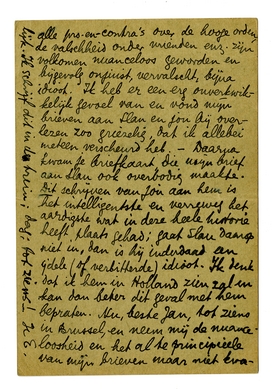 alle pro-en-contra's over de hooge orden,
de valschheid onder vrienden enz. zijn
volkomen nuanceloos geworden en
bijgevolg onjuist, vervalscht, bijna
idioot. Ik heb er een erg onverkwik-
kelijk gevoel van en vond mijn
brieven aan Slau en jou bij over-
lezen zoo griezelig, dat ik allebei
meteen verscheurd heb. – Daarna
kwam je briefkaart die mijn brief
aan Slau ook overbodig maakte.
Dit schrijven van jou aan hem is
het intelligentste en verreweg het
aardigste wat in deze heele historie
heeft plaats gehad; gaat Slau daarop
niet in, dan is hij inderdaad een
ijdele (of verbitterde) idioot. Ik denk
dat ik hem in Holland zien zal en
kan dan beter dit geval met hem
bepraten. Nu, beste Jan, tot ziens
in Brussel, en neem mij de nuance-
loosheid en het al te principieele
van mijn brieven maar niet kwa-
lijk. Ik schrijf dit in de